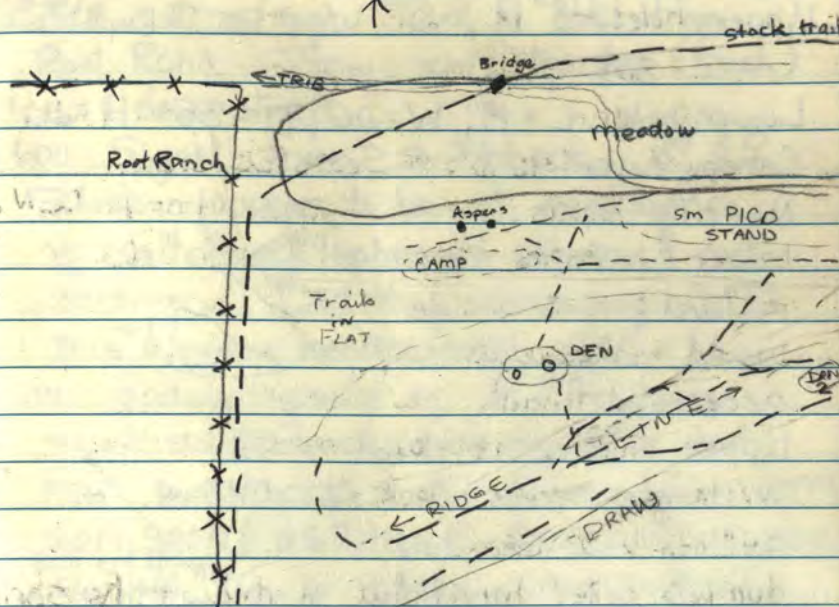 stock trail
Bridge
← TRIB
meadow
Root Ranch
Aspens
sm PICO
STAND
CAMP
Trails
in
FLAT
DEN
DEN
2
← RIDGE LINE →
DRAW